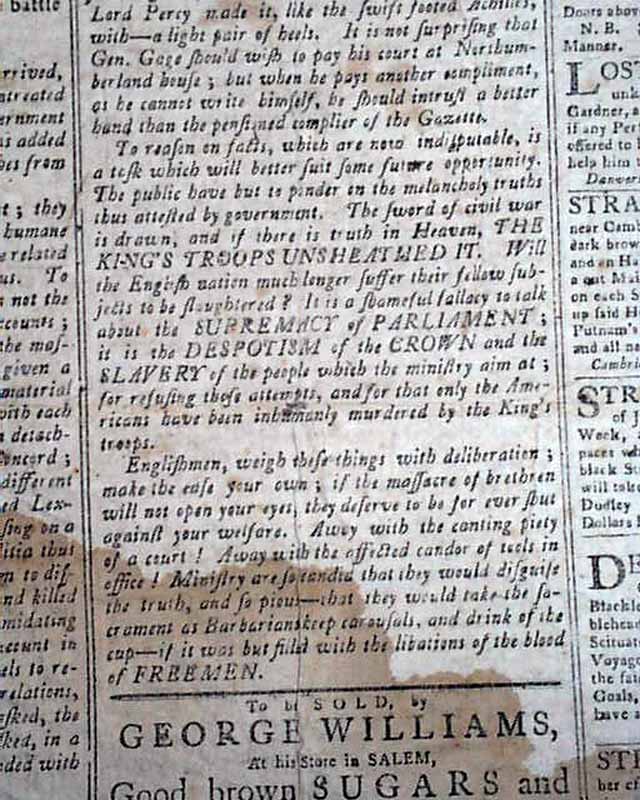 battle
rrived,
ntreated
ernment
as added
bes from
t ; they
humane
e related
us. To
s not the
ccounts ;
the mas-
given a
material
with each
n detach-
Concord ;
different
ed Lex-
sing on a
litia thus
m to dis-
nd killed
midating
ccount in
els to re-
relations,
asked, the
ked, in a
nded with
Lord Percy made it, like the swift footed Achilles,
with—a light pair of heels. It is not surprising that
Gen. Gage should wish to pay his court at Northum-
berland house ; but when he pays another compliment,
as he cannot write himself, he should intrust a better
hand than the pensioned complier of the Gazette.
To reason on facts, which are now indisputable, is
a task which will better suit some future opportunity.
The public have but to ponder on the melancholy truths
thus attested by government. The sword of civil war
is drawn, and if there is truth in Heaven, THE
KING'S TROOPS UNSHEATHED IT. Will
the English nation much longer suffer their fellow sub-
jects to be slaughtered ? It is a shameful fallacy to talk
about the SUPREMACY of PARLIAMENT ;
it is the DESPOTISM of the CROWN and the
SLAVERY of the people which the ministry aim at ;
for refusing those attempts, and for that only the Ame-
ricans have been inhumanly murdered by the King's
troops.
Englishmen, weigh these things with deliberation ;
make the case your own ; if the massacre of brethren
will not open your eyes, they deserve to be for ever shut
against your welfare. Away with the canting piety
of a court ! Away with the affected candor of tools in
office ! Ministry are so candid that they would disguise
the truth, and so pious—that they would take the sa-
crament as Barbarians keep carousals, and drink of the
cup—if it was but fill'd with the libations of the blood
of FREEMEN.
To be SOLD, by
GEORGE WILLIAMS,
At his Store in SALEM,
Good brown SUGARS and
Doors abov
N. B.
Manner.
LOST
unk
Gardner, a
if any Per
offered to
help him
Danvers
STRA
near Camb
dark brow
and an Ha
a out Mat
on each S
up said H
Putnam's
and all ne
Cambrid
STR
of J
Week,
paces wh
black S
will take
Dudley
Dollars
DE
Blackle
blehead
Scituat
Voyag
the fai
Goals,
have s
STR
ber cr